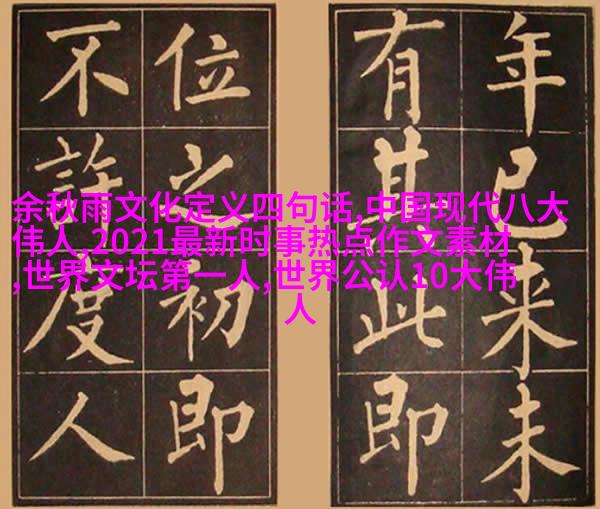 年已来未
有其此即
位之初即
不許度人
余秋雨文化定义四句话,中国现代八大
伟人,2021最新时事热点作文素材
,世界文坛第一人,世界公认10大伟
人